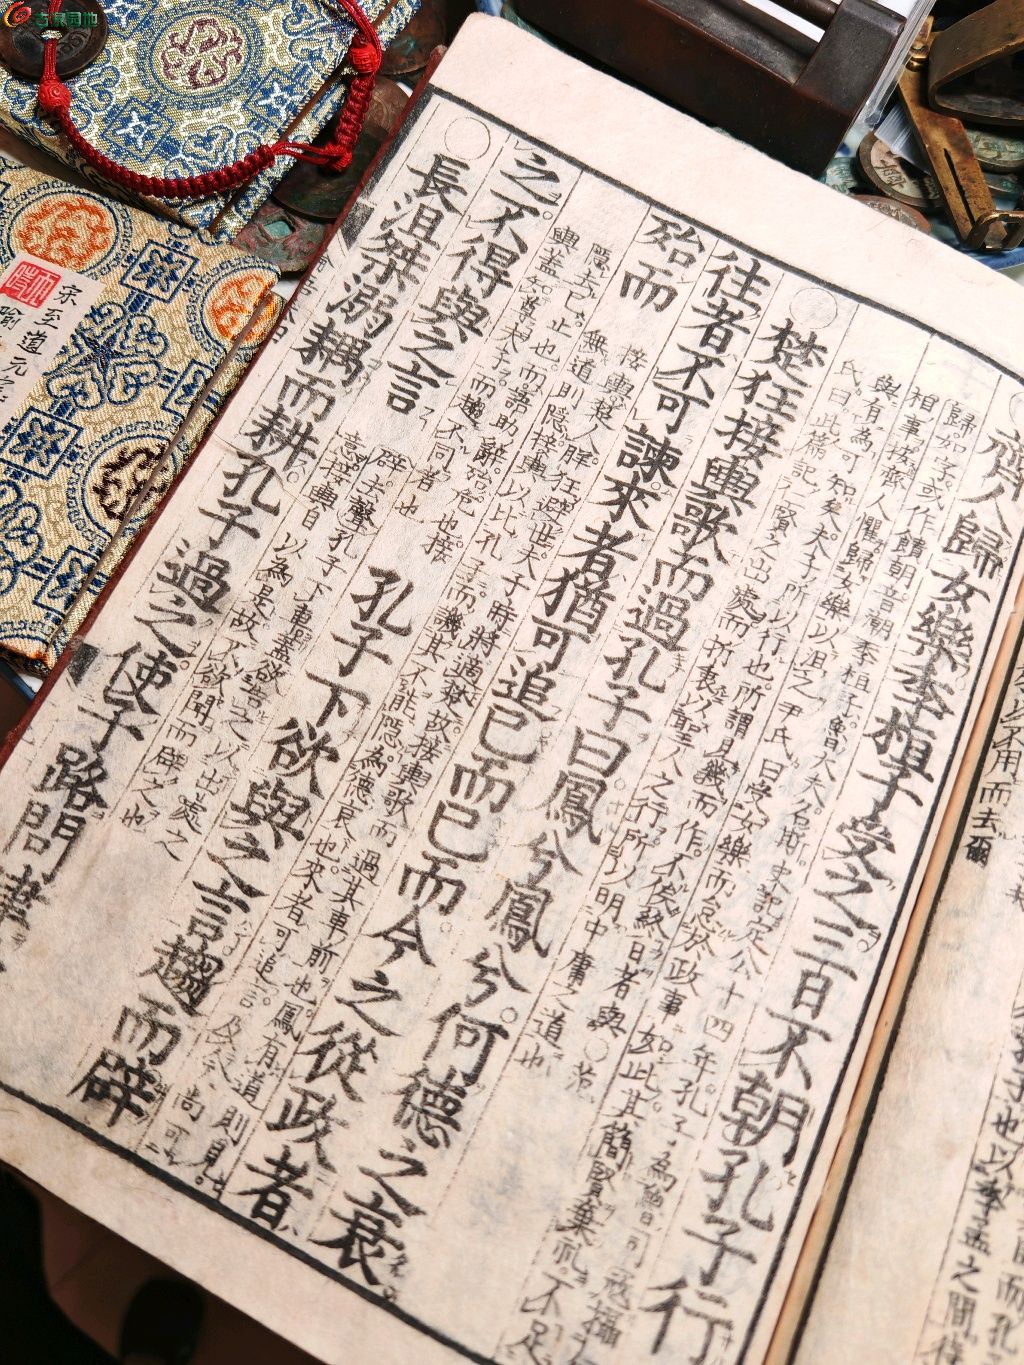 不用而去爾
也以季孟之間待
齊人歸女樂季桓子受之三日不朝孔子行
歸如字或作饋朝音潮季桓子魯大夫名斯史記定公十四年孔子為魯司寇攝
相事齊人懼歸女樂以沮之尹氏曰受女樂而怠於政事如此其簡賢棄禮不足
與有為可知矣夫子所以行也所謂見幾而作不俟終日者與○范
氏曰此篇記仁賢之出處而折衷以聖人之行所以明中庸之道也
○楚狂接輿歌而過孔子曰鳳兮鳳兮何德之衰
往者不可諫來者猶可追已而已而今之從政者
殆而
接輿楚人佯狂避世夫子時將適楚故接輿歌而過其車前也鳳有道則見
無道則隱接輿以比孔子而譏其不能隱為德衰也來者可追言及今尚可
隱去已止也而語助辭殆危也接
輿蓋知尊夫子而趨不同者也
孔子下欲與之言趨而辟
之不得與之言
辟去聲孔子下車蓋欲告之以出處之
意接輿自以為是故不欲聞而辟之也
○長沮桀溺耦而耕孔子過之使子路問津
宋至道元